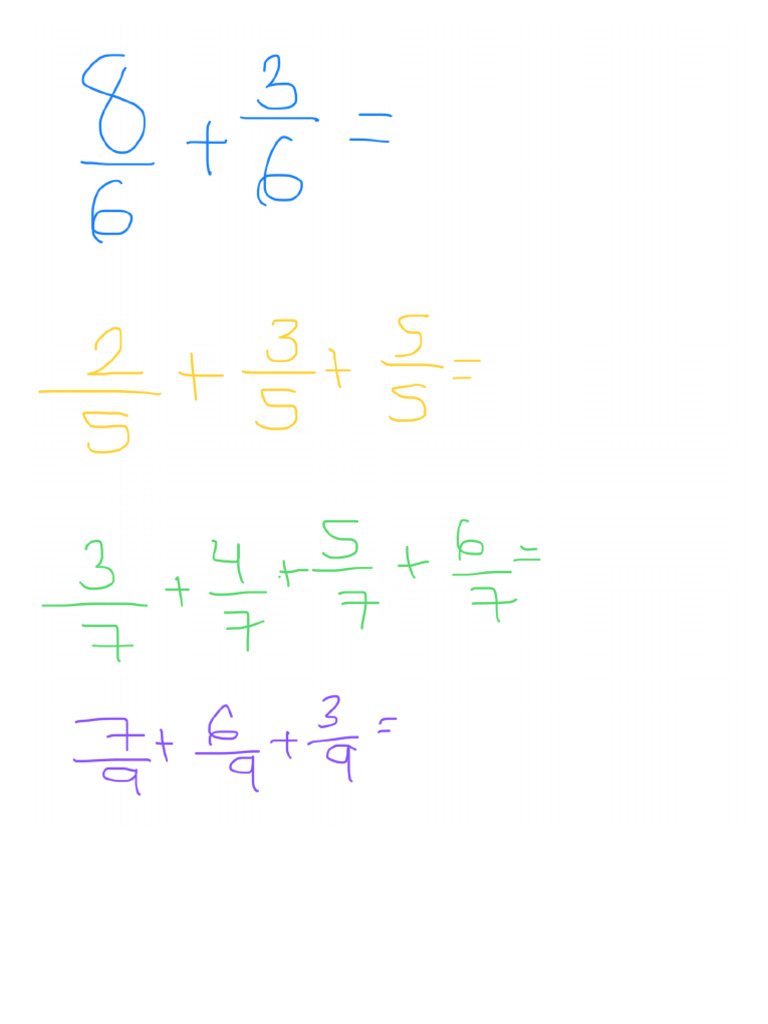 8/6 + 3/6 =
2/5 + 3/5 + 5/5 =
3/7 + 4/7 + 5/7 + 6/7 =
7/9 + 6/9 + 3/9 =